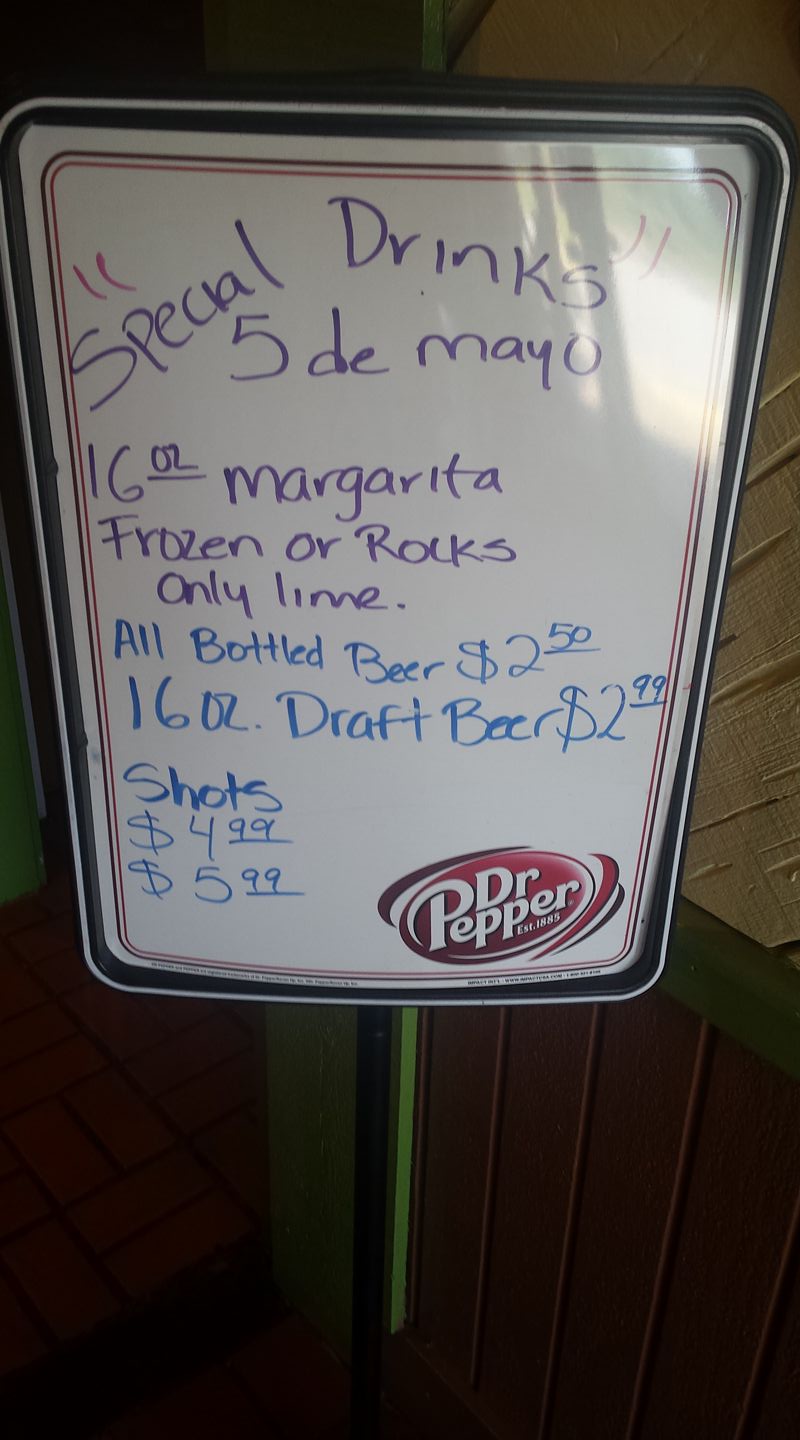 "Special Drinks"
5 de mayo
16 oz margarita
Frozen or Rocks
only lime.
All Bottled Beer $2 50
16 oz. Draft Beer $2 99
Shots
$ 4 99
$ 5 99
Dr
Pepper
Est.1885